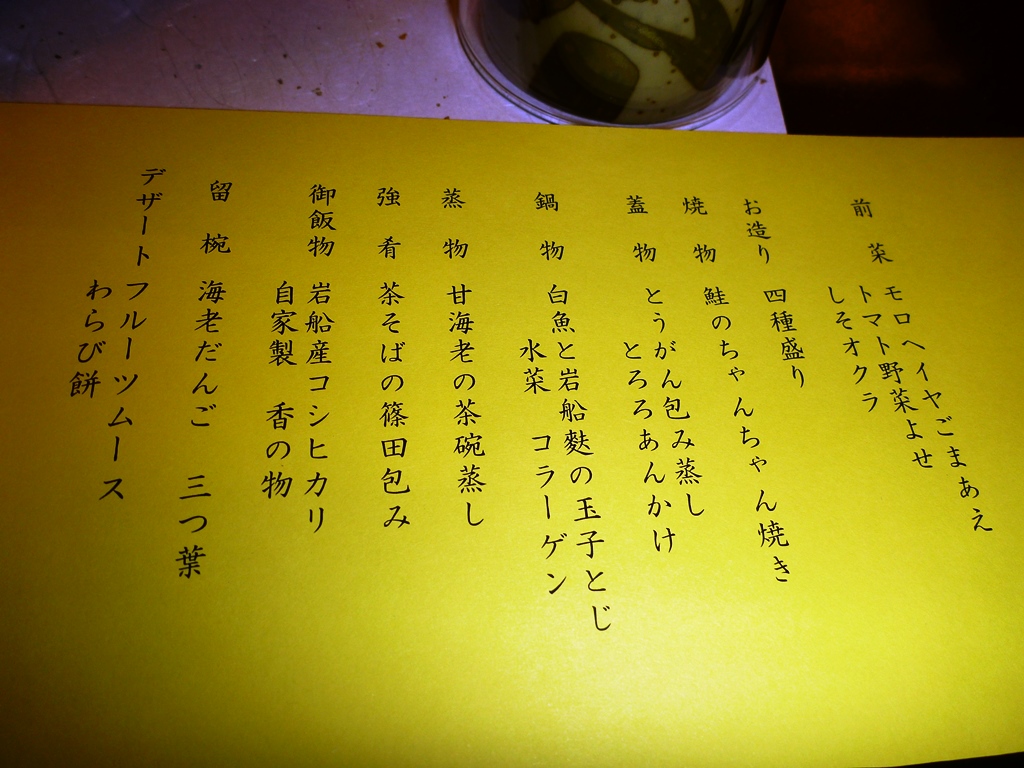 前菜 モロヘイヤごまあえ
トマト野菜よせ
しそオクラ
お造り 四種盛り
焼物 鮭のちゃんちゃん焼き
蓋物 とうがん包み蒸し
とろろあんかけ
鍋物 白魚と岩船麩の玉子とじ
水菜 コラーゲン
蒸物 甘海老の茶碗蒸し
強肴 茶そばの篠田包み
御飯物 岩船産コシヒカリ
自家製 香の物
留椀 海老だんご 三つ葉
デザート フルーツムース
わらび餅